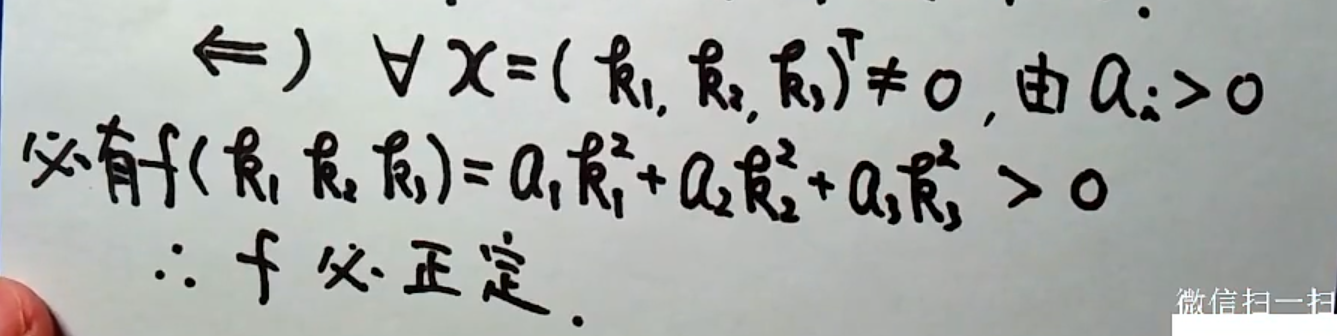 ⇐) ∀ x=( k₁, k₂, k₃)ᵀ≠0, 由 aᵢ>0
必有f( k₁ k₂ k₃)= a₁k₁²+ a₂k₂²+ a₃k₃² > 0
∴ f 必正定.
微信扫一扫